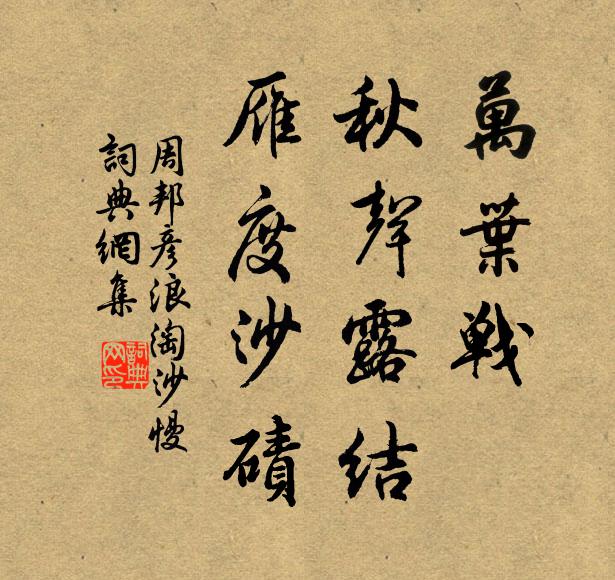 萬葉戰
秋聲露結
雁度沙磧
周邦彥浪淘沙慢
詞典網集
詞典
网印